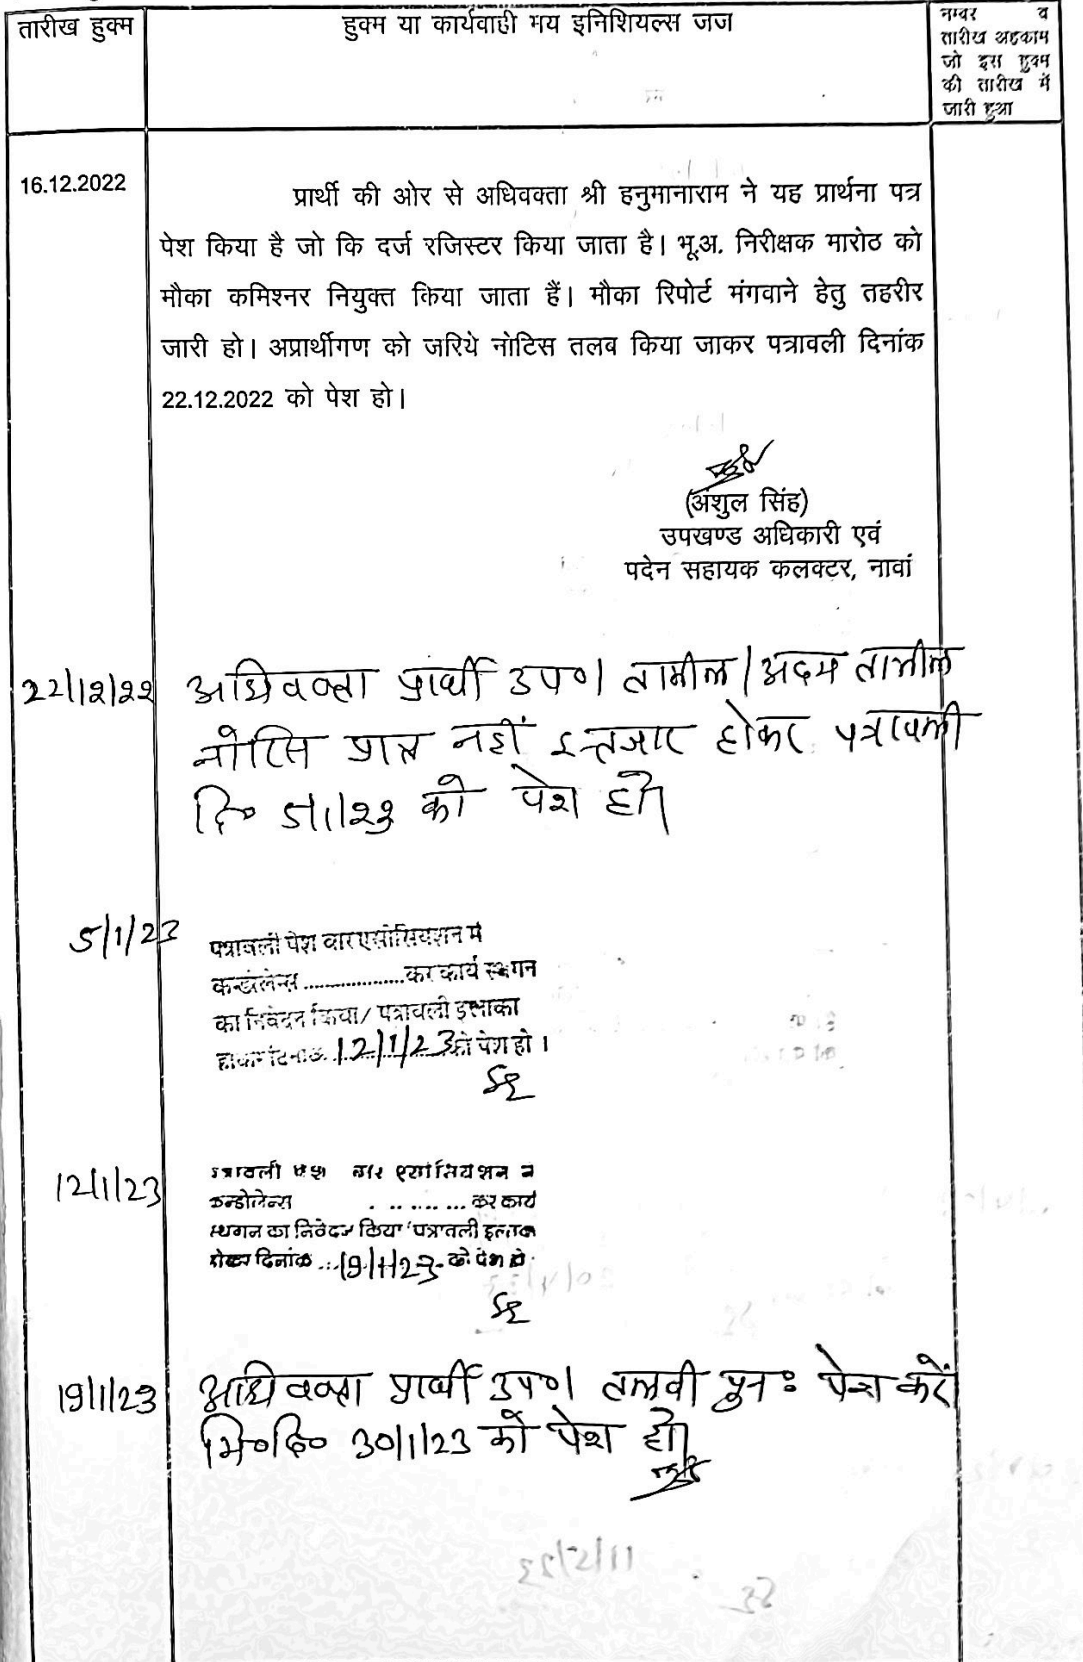 तारीख हुक्म
हुक्म या कार्यवाही मय इनिशियल्स जज
नम्बर व
तारीख अहकाम
जो इस हुक्म
की तारीख में
जारी हुआ
16.12.2022
प्रार्थी की ओर से अधिवक्ता श्री हनुमानाराम ने यह प्रार्थना पत्र
पेश किया है जो कि दर्ज रजिस्टर किया जाता है। भू.अ. निरीक्षक मारोठ को
मौका कमिश्नर नियुक्त किया जाता हैं। मौका रिपोर्ट मंगवाने हेतु तहरीर
जारी हो। अप्रार्थीगण को जरिये नोटिस तलब किया जाकर पत्रावली दिनांक
22.12.2022 को पेश हो।
(अंशुल सिंह)
उपखण्ड अधिकारी एवं
पदेन सहायक कलक्टर, नावां
22/12/22 अधिवक्ता प्रार्थी उप० तामील/अदम तामील
नोटिस प्राप्त नहीं इन्तजार होकर पत्रावली
दि० 5/1/23 को पेश हो।
5/1/23
पत्रावली पेश बार एसोसियशन में
कन्डोलेन्स ..................कर कार्य स्थगन
का निवेदन किया/ पत्रावली इस्ताका
होकर दिनांक. 12/1/23 को पेश हो ।
12/1/23
पत्रावली पेश बार एसोसियशन ने
कन्डोलेन्स . .. ..... ... कर कार्य
स्थगन का निवेदन किया पत्रातली इल्ताक
होकर दिनांक ...19/1/23 को पेश हो.
19/1/23 अधिवक्ता प्रार्थी उप० तलबी पुनः पेश करें
मि०दि० 30/1/23 को पेश हो।